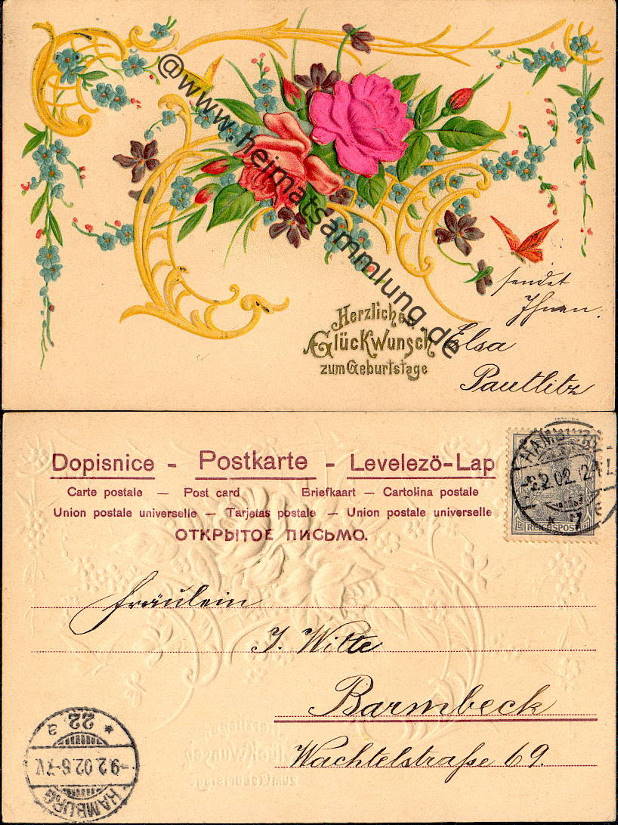 @www.heimatsammlung.de
Herzlichen
Glückwunsch
zum Geburtstage
sendet
Ihnen.
Elsa
Pautlitz
Dopisnice - Postkarte - Levelezö-Lap
Carte postale — Post card Briefkaart — Cartolina postale
Union postale universelle — Tarjetas postale — Union postale universelle
ОТКРЫТОЕ ПИСЬМО.
HAMBURG
REICHSPOST
Fräulein
J. Witte
Barmbeck
Wachtelstraße 69.
HAMBURG
9.2.02.6-7V.
* 22 a